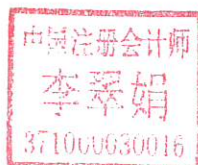 中国注册会计师
李翠娟
371000630016